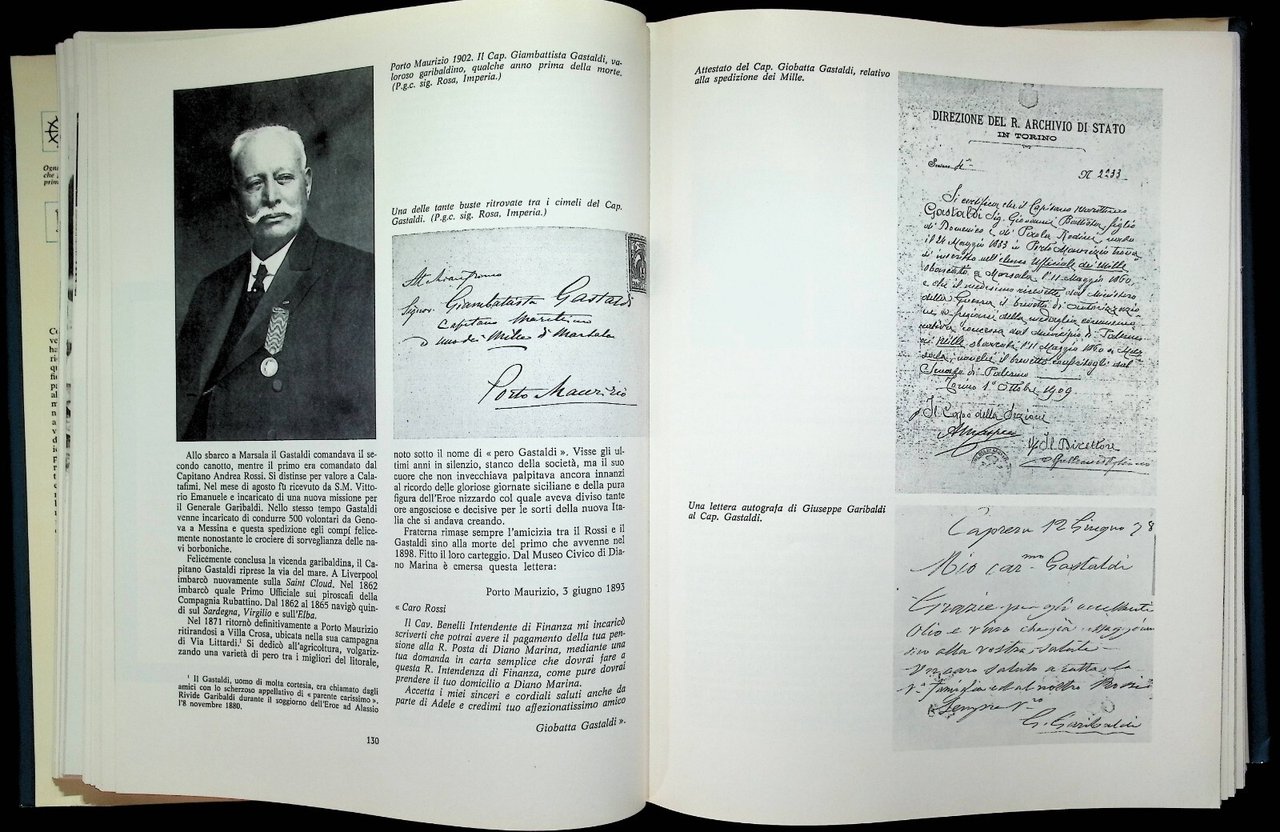 Porto Maurizio 1902. Il Cap. Giambattista Gastaldi, va-
loroso garibaldino, qualche anno prima della morte.
(P.g.c. sig. Rosa, Imperia.)
Una delle tante buste ritrovate tra i cimeli del Cap.
Gastaldi. (P.g.c. sig. Rosa, Imperia.)
Signor Giambattista Gastaldi
Capitano Marittimo
uno dei Mille di Marsala
Porto Maurizio
Allo sbarco a Marsala il Gastaldi comandava il se-
condo canotto, mentre il primo era comandato dal
Capitano Andrea Rossi. Si distinse per valore a Cala-
tafimi. Nel mese di agosto fu ricevuto da S.M. Vitto-
rio Emanuele e incaricato di una nuova missione per
il Generale Garibaldi. Nello stesso tempo Gastaldi
venne incaricato di condurre 500 volontari da Geno-
va a Messina e questa spedizione egli compì felice-
mente nonostante le crociere di sorveglianza delle na-
vi borboniche.
Felicemente conclusa la vicenda garibaldina, il Ca-
pitano Gastaldi riprese la via del mare. A Liverpool
imbarcò nuovamente sulla Saint Cloud. Nel 1862
imbarcò quale Primo Ufficiale sui piroscafi della
Compagnia Rubattino. Dal 1862 al 1865 navigò quin-
di sul Sardegna, Virgilio e sull'Elba.
Nel 1871 ritornò definitivamente a Porto Maurizio
ritirandosi a Villa Crosa, ubicata nella sua campagna
di Via Littardi.¹ Si dedicò all'agricoltura, volgariz-
zando una varietà di pero tra i migliori del litorale,
¹ Il Gastaldi, uomo di molta cortesia, era chiamato dagli
amici con lo scherzoso appellativo di « parente carissimo ».
Rivide Garibaldi durante il soggiorno dell'Eroe ad Alassio
l'8 novembre 1880.
130
noto sotto il nome di « pero Gastaldi ». Visse gli ul-
timi anni in silenzio, stanco della società, ma il suo
cuore che non invecchiava palpitava ancora innanzi
al ricordo delle gloriose giornate siciliane e della pura
figura dell'Eroe nizzardo col quale aveva diviso tante
ore angosciose e decisive per le sorti della nuova Ita-
lia che si andava creando.
Fraterna rimase sempre l'amicizia tra il Rossi e il
Gastaldi sino alla morte del primo che avvenne nel
1898. Fitto il loro carteggio. Dal Museo Civico di Dia-
no Marina è emersa questa lettera:
Porto Maurizio, 3 giugno 1893
« Caro Rossi
Il Cav. Benelli Intendente di Finanza mi incaricò
scriverti che potrai avere il pagamento della tua pen-
sione alla R. Posta di Diano Marina, mediante una
tua domanda in carta semplice che dovrai fare a
questa R. Intendenza di Finanza, come pure dovrai
prendere il tuo domicilio a Diano Marina.
Accetta i miei sinceri e cordiali saluti anche da
parte di Adele e credimi tuo affezionatissimo amico
Giobatta Gastaldi ».
Attestato del Cap. Giobatta Gastaldi, relativo
alla spedizione dei Mille.
DIREZIONE DEL R. ARCHIVIO DI STATO
IN TORINO
N. 2233
Si certifica che il Capitano Marittimo
Gastaldi Sig. Giovanni Battista figlio
di Domenico e di Paola Rodini nato
il 24 Maggio 1833 in Porto Maurizio trova-
si inscritto nell'elenco Ufficiale dei Mille
sbarcati a Marsala l'11 Maggio 1860,
e che il medesimo ricevette dal Ministero
della Guerra il brevetto di autorizzazio
ne a fregiarsi della medaglia commemo
rativa concessa dal municipio di Palermo
ai Mille sbarcati l'11 Maggio 1860 a Mar
sala, nonché il brevetto
Senato di Palermo
Torino 1° Ottobre 1909
Il Capo della Sezione
Il Direttore
Una lettera autografa di Giuseppe Garibaldi
al Cap. Gastaldi.
Caprera 12 Giugno 78
Mio carmo Gastaldi
Grazie per gli eccellenti
Olio e vino
alla vostra salute
Un caro saluto a tutta la
famiglia ed al nostro Rossi
Sempre Vro
G. Garibaldi